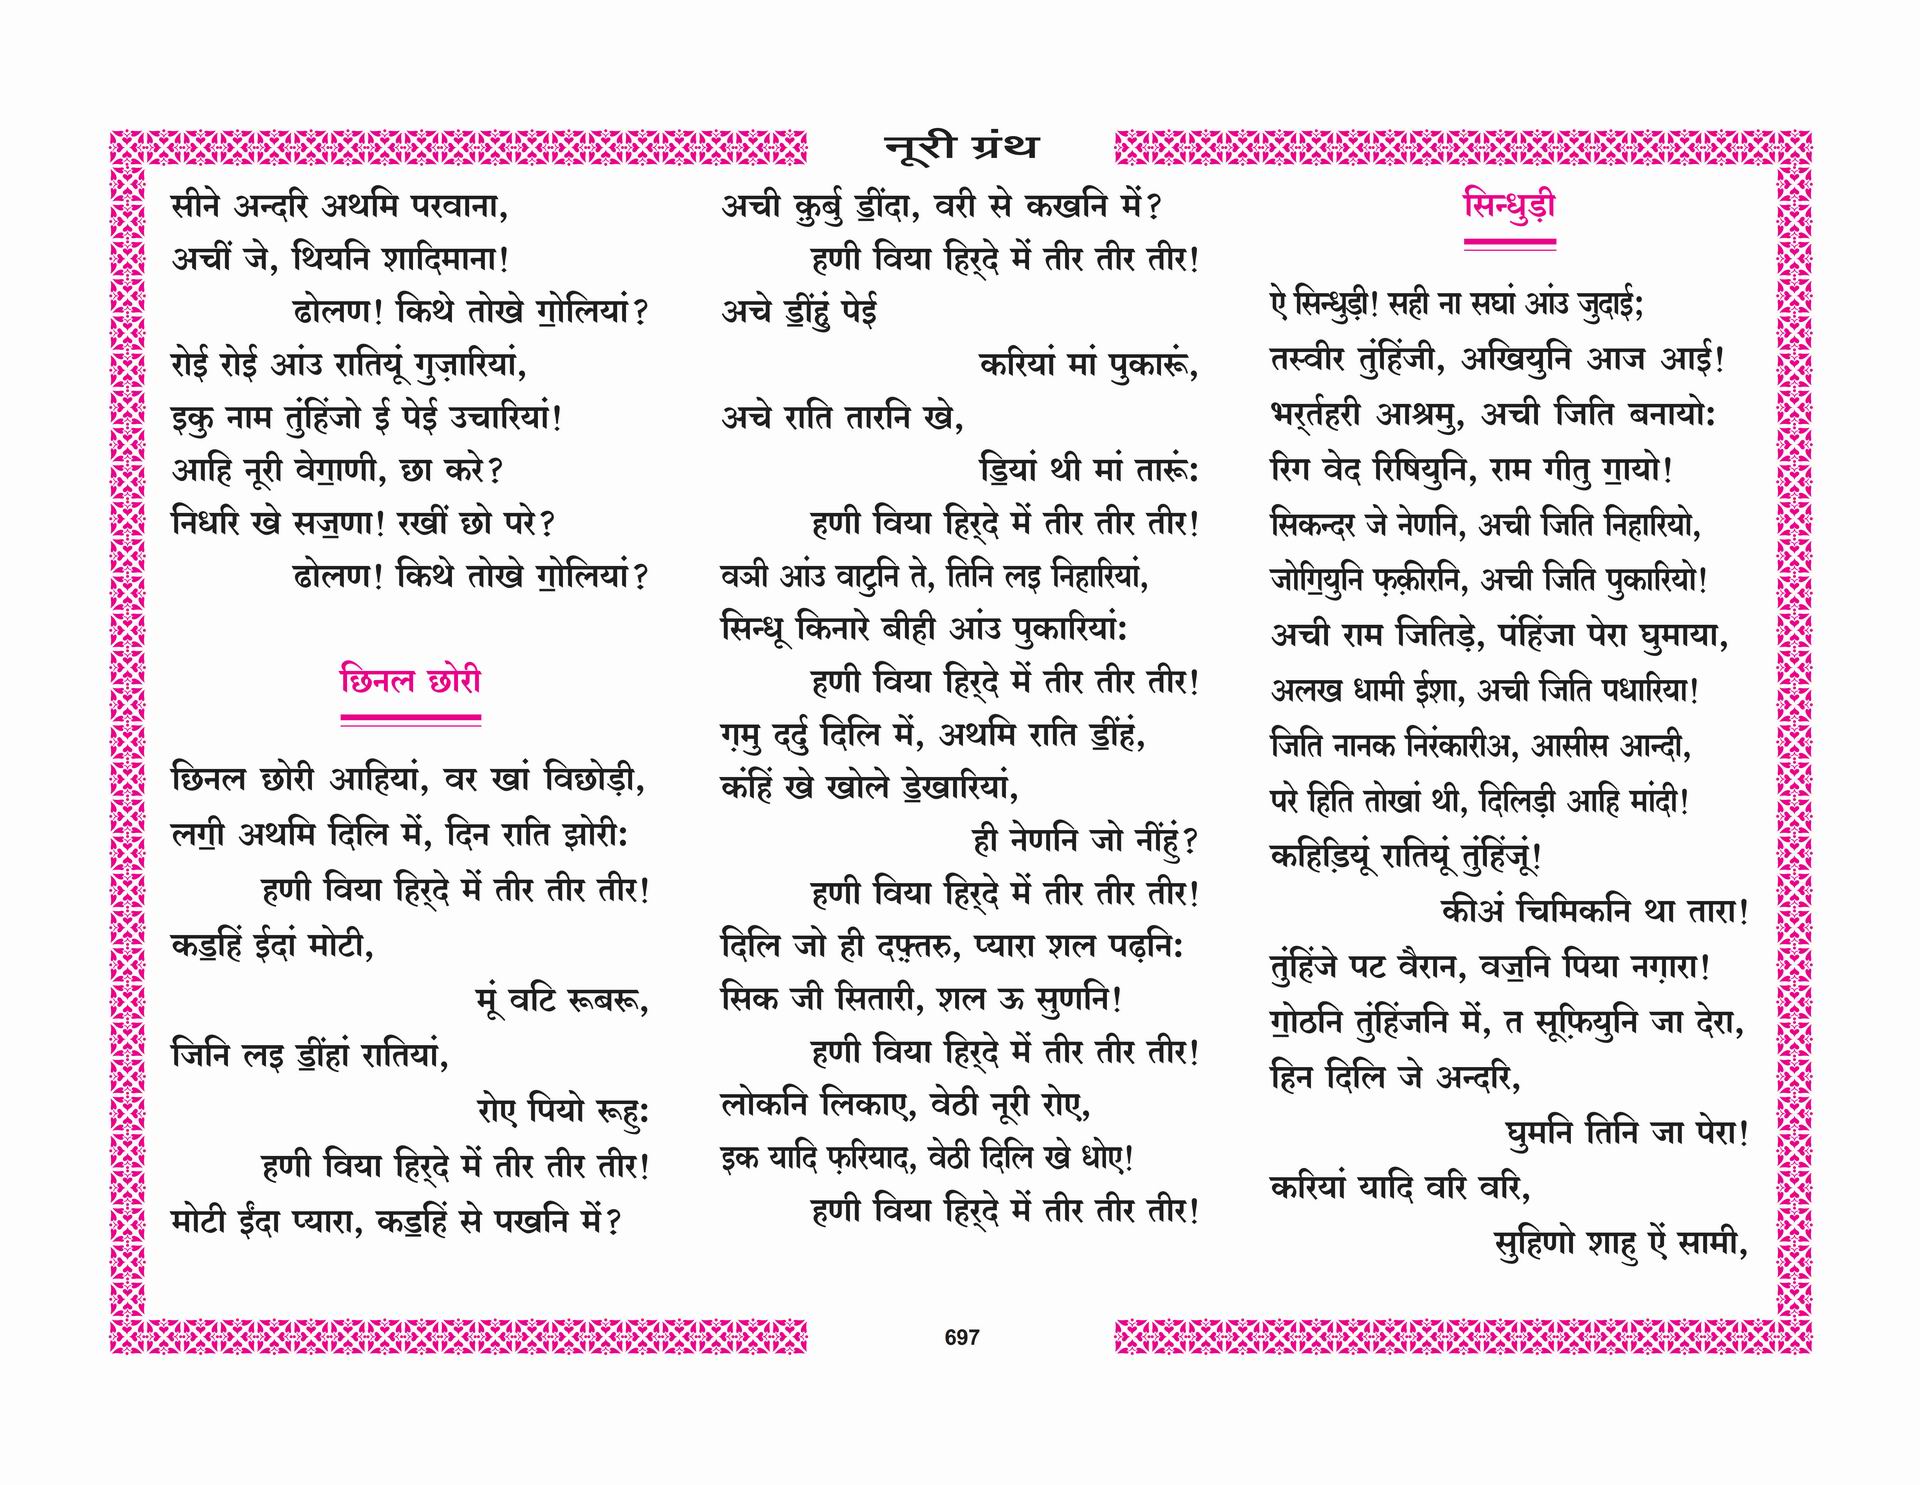 नूरी ग्रंथ
सीने अन्दरि अथमि परवाना,
अचीं जे, थियनि शादिमाना!
ढोलण! किथे तोखे ॻोलियां?
रोई रोई आंउ रातियूं गुज़ारियां,
इकु नाम तुंहिंजो ई पेई उचारियां!
आहि नूरी वेॻाणी, छा करे?
निधरि खे सॼणा! रखीं छो परे?
ढोलण! किथे तोखे ॻोलियां?
छिनल छोरी
छिनल छोरी आहियां, वर खां विछोड़ी,
लॻी अथमि दिलि में, दिन राति झोरी:
हणी विया हिर्‌दे में तीर तीर तीर!
कॾहिं ईदां मोटी,
मूं वटि रूबरू,
जिनि लइ ॾींहां रातियां,
रोए पियो रूहु:
हणी विया हिर्‌दे में तीर तीर तीर!
मोटी ईंदा प्यारा, कॾहिं से पखनि में?
अची क़ुर्बु ॾींदा, वरी से कखनि में?
हणी विया हिर्‌दे में तीर तीर तीर!
अचे ॾींहुं पेई
करियां मां पुकारूं,
अचे राति तारनि खे,
ॾियां थी मां तारूं:
हणी विया हिर्‌दे में तीर तीर तीर!
वञी आंउ वाटुनि ते, तिनि लइ निहारियां,
सिन्धू किनारे बीही आंउ पुकारियां:
हणी विया हिर्‌दे में तीर तीर तीर!
ग़मु दर्दु दिलि में, अथमि राति ॾींहं,
कंहिं खे खोले ॾेखारियां,
ही नेणनि जो नींहुं?
हणी विया हिर्‌दे में तीर तीर तीर!
दिलि जो ही दफ़्तरु, प्यारा शल पढ़नि:
सिक जी सितारी, शल ऊ सुणनि!
हणी विया हिर्‌दे में तीर तीर तीर!
लोकनि लिकाए, वेठी नूरी रोए,
इक यादि फ़रियाद, वेठी दिलि खे धोए!
हणी विया हिर्‌दे में तीर तीर तीर!
सिन्धुड़ी
ऐ सिन्धुड़ी! सही ना सघां आंउ जुदाई;
तस्वीर तुंहिंजी, अखियुनि आज आई!
भर्‌तहरी आश्रमु, अची जिति बनायो:
रिग वेद रिषियुनि, राम गीतु ॻायो!
सिकन्दर जे नेणनि, अची जिति निहारियो,
जोॻियुनि फ़क़ीरनि, अची जिति पुकारियो!
अची राम जितिड़े, पंहिंजा पेरा घुमाया,
अलख धामी ईशा, अची जिति पधारिया!
जिति नानक निरंकारीअ, आसीस आन्दी,
परे हिति तोखां थी, दिलिड़ी आहि मांदी!
कहिड़ियूं रातियूं तुंहिंजूं!
कीअं चिमिकनि था तारा!
तुंहिंजे पट वैरान, वॼनि पिया नग़ारा!
ॻोठनि तुंहिंजनि में, त सूफ़ियुनि जा देरा,
हिन दिलि जे अन्दरि,
घुमनि तिनि जा पेरा!
करियां यादि वरि वरि,
सुहिणो शाहु ऐं सामी,
697